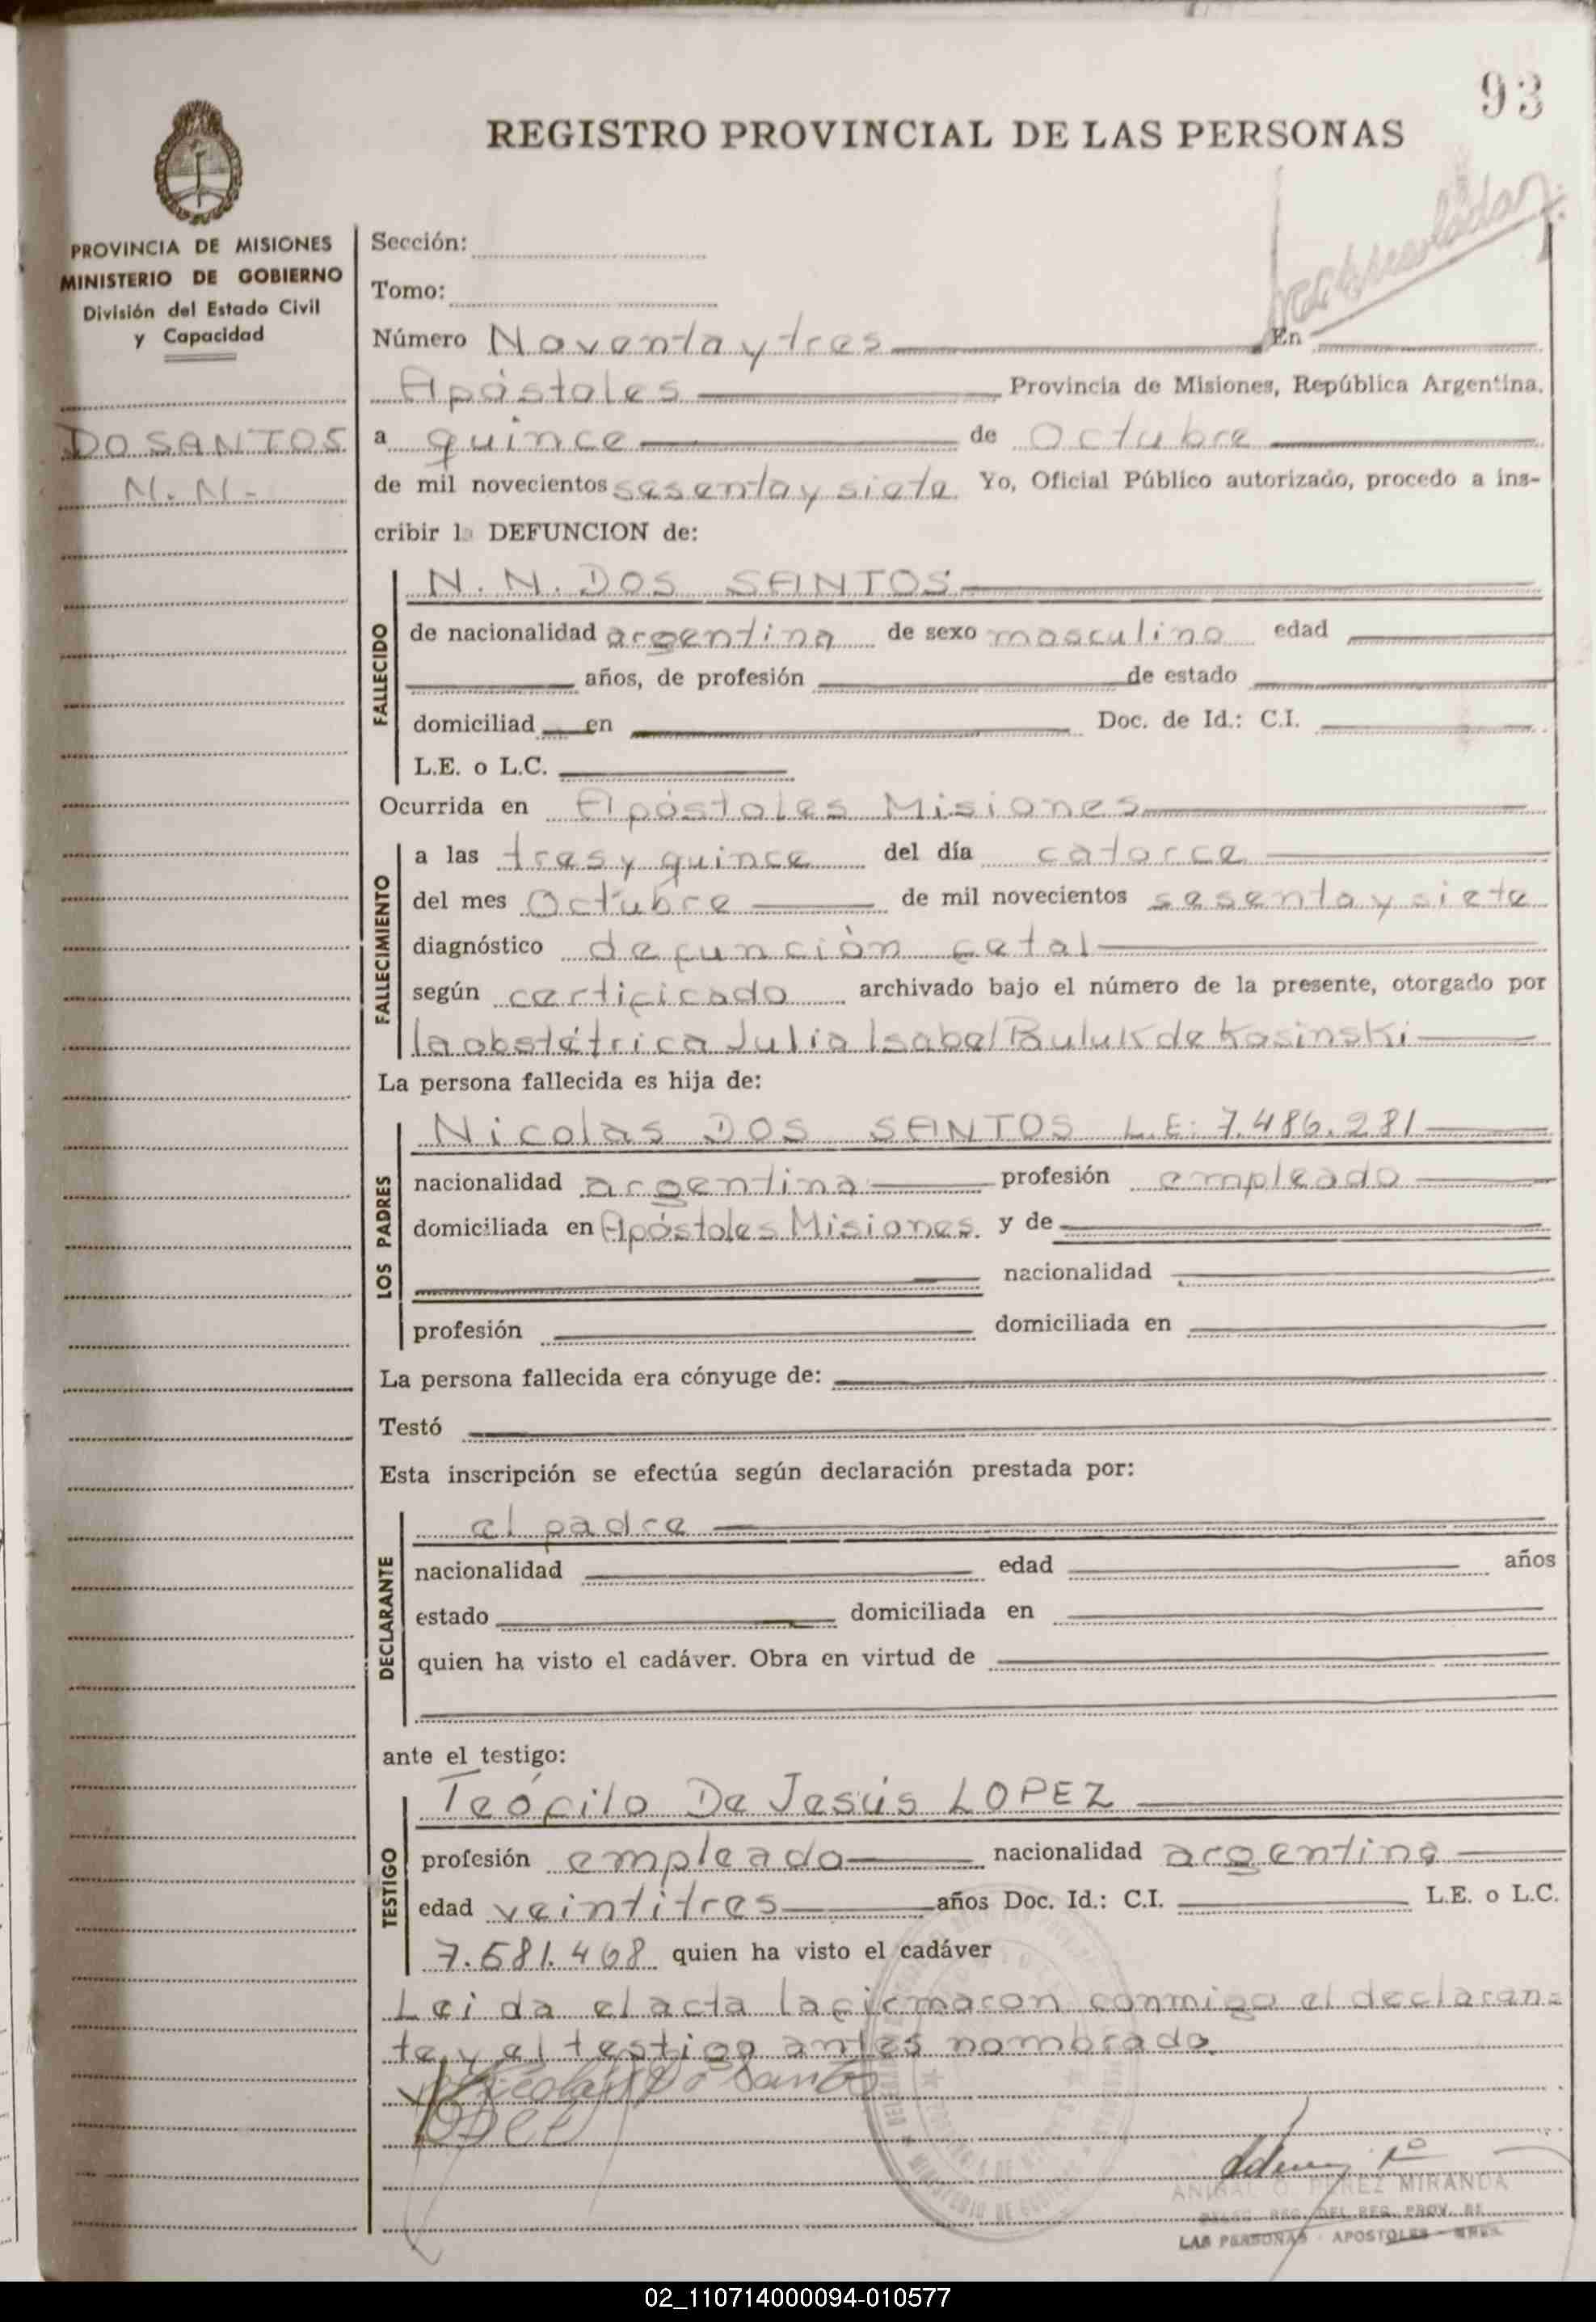 93
REGISTRO PROVINCIAL DE LAS PERSONAS
PROVINCIA DE MISIONES
MINISTERIO DE GOBIERNO
División del Estado Civil
y Capacidad
DO SANTOS
N. N.-
Sección:
Tomo:
Número Noventa y tres En
Apóstoles Provincia de Misiones, República Argentina,
a quince de Octubre
de mil novecientos sesenta y siete. Yo, Oficial Público autorizado, procedo a ins-
cribir la DEFUNCION de:
FALLECIDO
N. N. DOS SANTOS
de nacionalidad argentina de sexo masculino edad
años, de profesión de estado
domiciliad en Doc. de Id.: C.I.
L.E. o L.C.
Ocurrida en Apóstoles Misiones
FALLECIMIENTO
a las tres y quince del día catorce
del mes Octubre de mil novecientos sesenta y siete
diagnóstico defunción fetal
según certificado archivado bajo el número de la presente, otorgado por
la obstétrica Julia Isabel Buluk de Kosinski
La persona fallecida es hija de:
LOS PADRES
Nicolas DOS SANTOS L.E: 7.486.281
nacionalidad argentina profesión empleado
domiciliada en Apóstoles Misiones. y de
nacionalidad
profesión domiciliada en
La persona fallecida era cónyuge de:
Testó
Esta inscripción se efectúa según declaración prestada por:
DECLARANTE
el padre
nacionalidad edad años
estado domiciliada en
quien ha visto el cadáver. Obra en virtud de
ante el testigo:
TESTIGO
Teófilo De Jesús LOPEZ
profesión empleado nacionalidad argentina
edad veintitres años Doc. Id.: C.I. L.E. o L.C.
7.581.468 quien ha visto el cadáver
Leída el acta la firmaron conmigo el declaran=
te y el testigo antes nombrado.
Nicolas Do Santo
MINISTERIO DE GOBIERNO
ANIBAL O. PEREZ MIRANDA
DEL REG. PROV. DE
LAS PERSONAS - APOSTOLES - MNES.
02_110714000094-010577